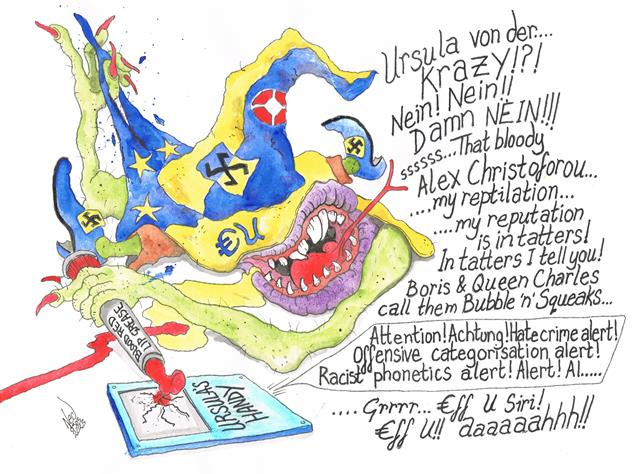 Ursula von der....
Krazy!?!
Nein! Nein!!
Damn NEIN!!!
ssssss...That bloody
Alex Christoforou...
....my reptilation...
....my reputation
is in tatters!
In tatters I tell you!
Boris & Queen Charles
call them Bubble 'n' Squeaks...
Attention! Achtung! Hate crime alert!
Offensive categorisation alert!
Racist phonetics alert! Alert! Al.....
....Grrrr... €ff U Siri!
€ff U!! aaaaaahhh!!
BLOOD RED
LIP GREASE
URSULA'S
HANDY